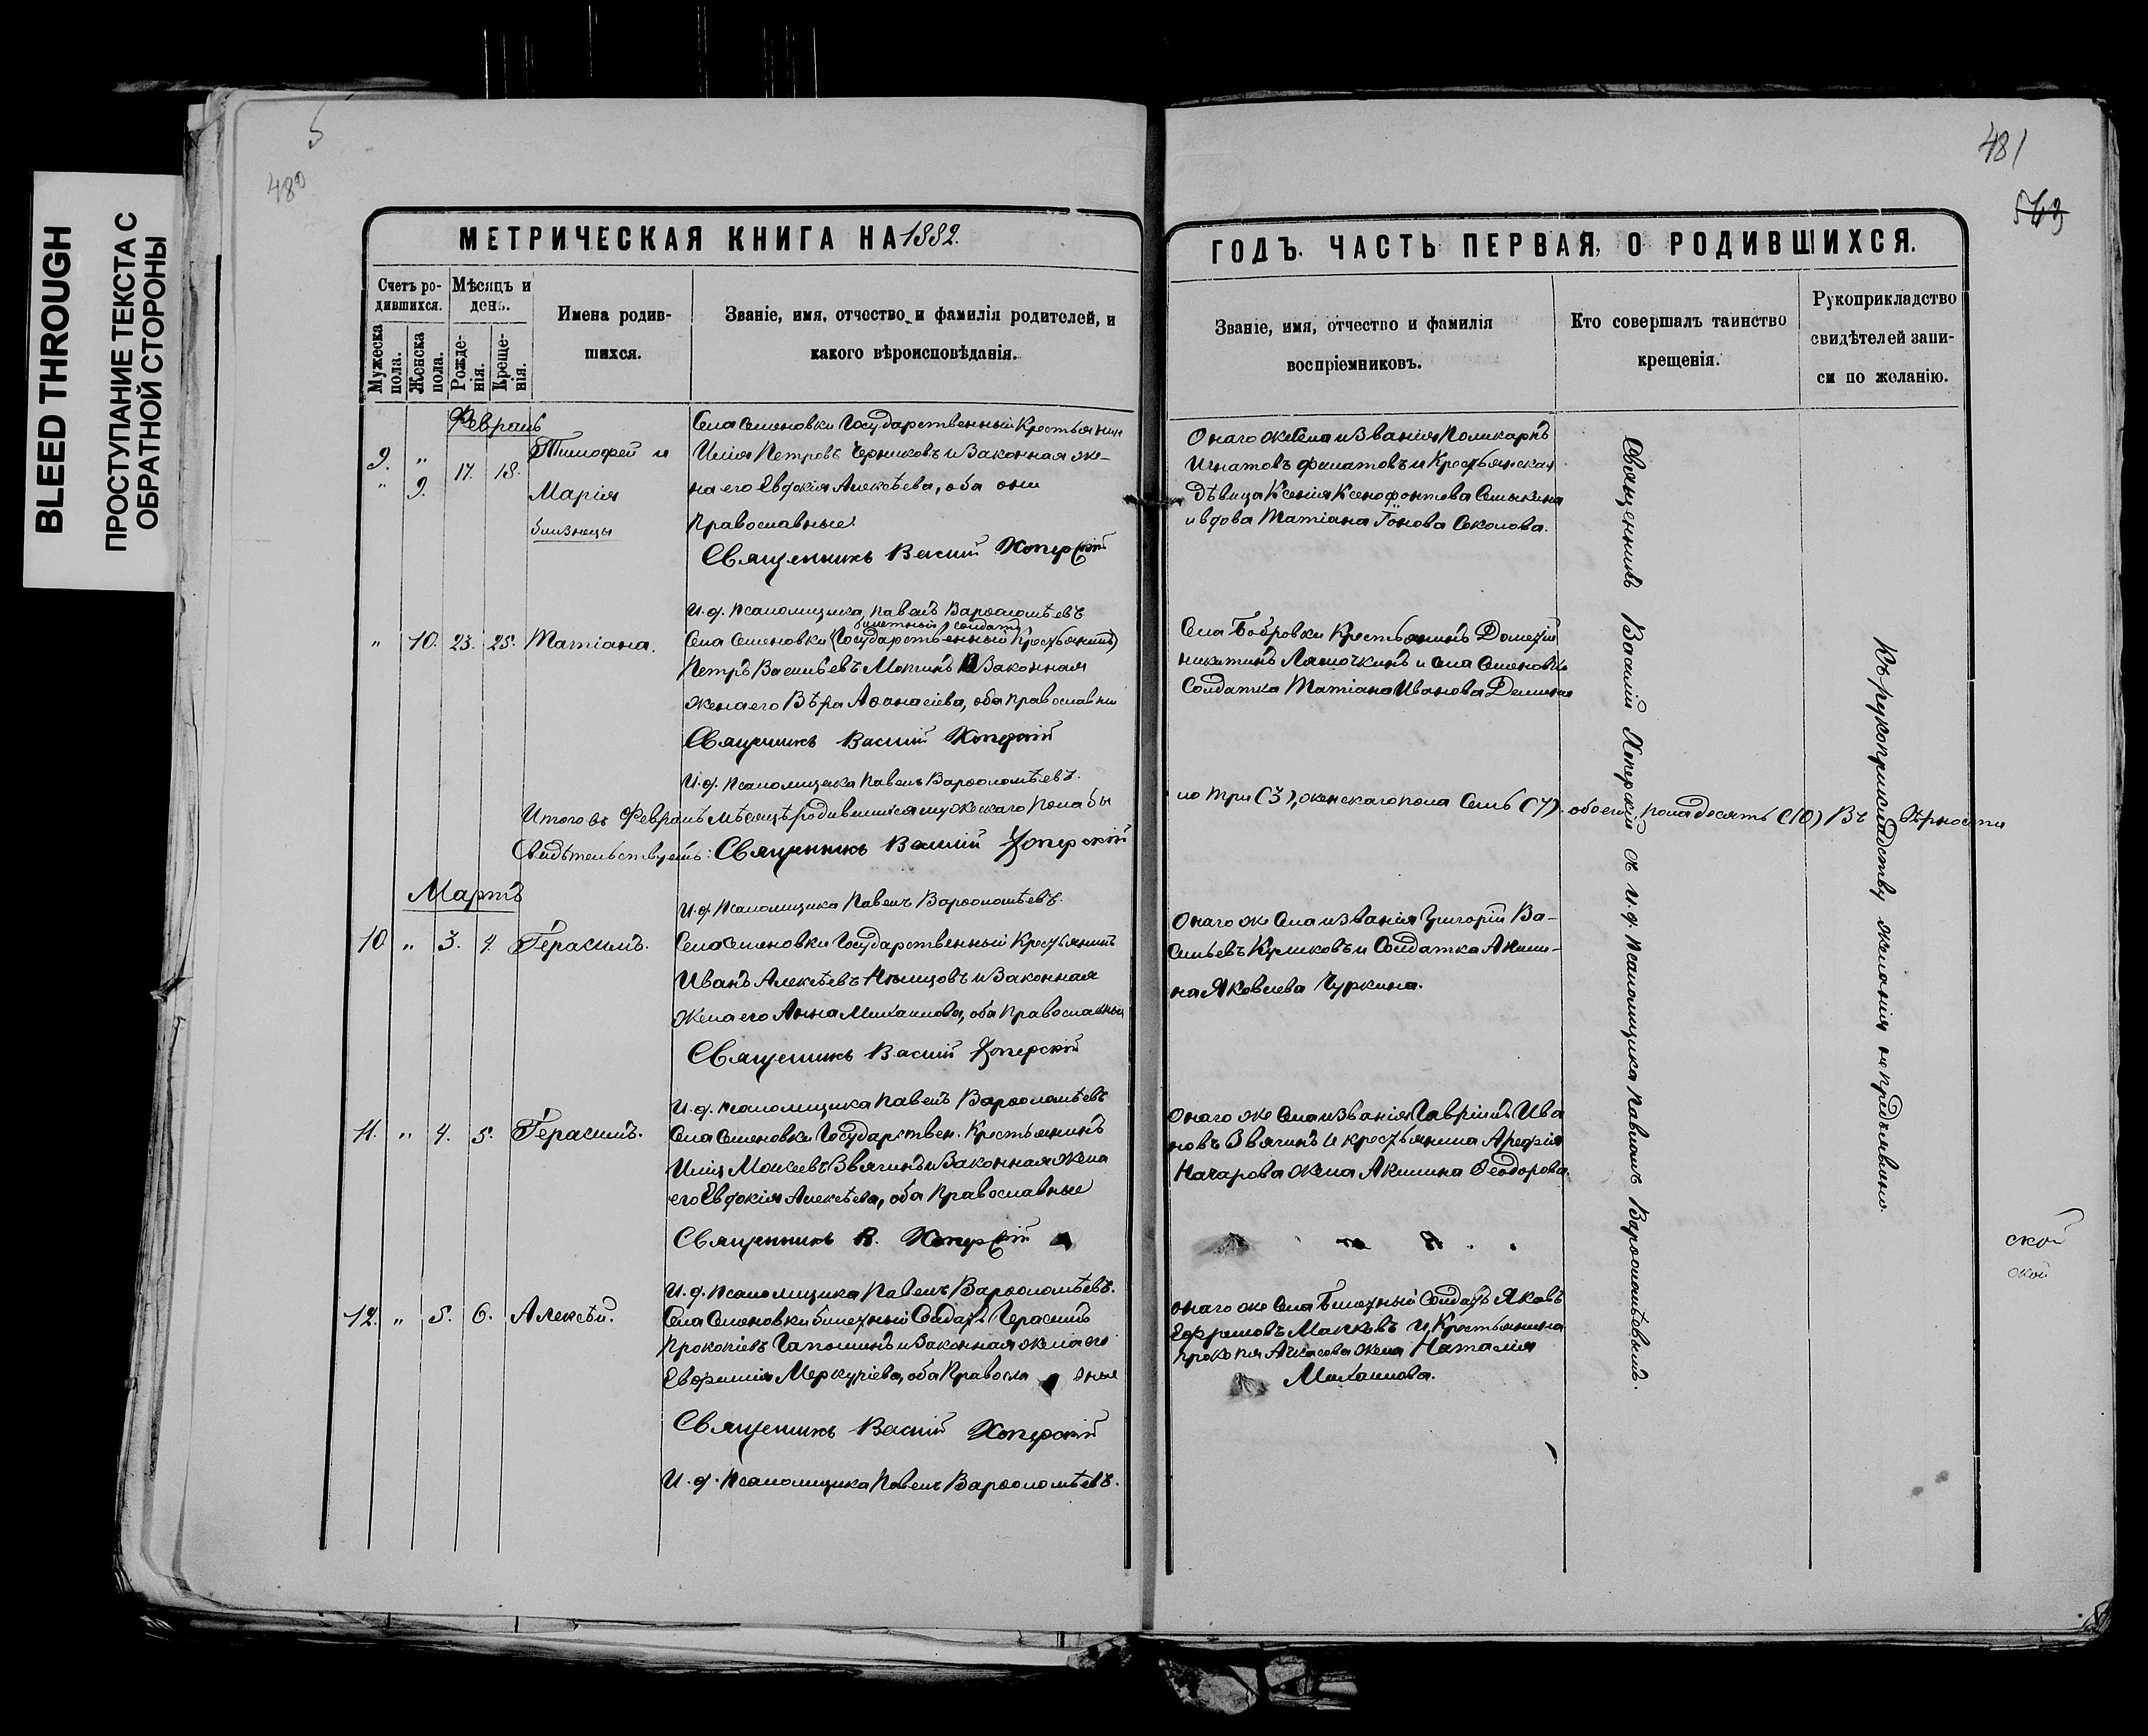 BLEED THROUGH
ПРОСТУПАНИЕ ТЕКСТА С
ОБРАТНОЙ СТОРОНЫ
5
480
МЕТРИЧЕСКАЯ КНИГА НА 1882.
Счетъ ро-
дившихся.
Мужеска
пола.
Женска
пола.
Мѣсяцъ и
день.
Рожде-
нія.
Креще-
нія.
Имена родив-
шихся.
Званіе, имя, отчество и фамилія родителей, и
какого вѣроисповѣданія.
Февраль
9. „ 17. 18. Тимофей и
„ 9. Марія
близнецы
Села Семеновки Государственный Крестьянин
Илія Петровъ Черниковъ и Законная же-
на его Евдокія Алексѣева, оба они
Православные
Священникъ Василій Хоперскій
И. д. Псаломщика Павелъ Варѳоломѣевъ
„ 10. 23. 25. Татіана.
билетный солдатъ
Села Семеновки (Государственный Крестьянинъ)
Петръ Васильевъ Мотинъ и Законная
жена его Вѣра Аѳанасіева, оба православны
Священникъ Василій Хоперскій
И. д. Псаломщика Павелъ Варѳоломѣевъ.
Итого въ Февралѣ мѣсяцѣ родившихся мужескаго пола бы
Свидѣтельствуемъ: Священникъ Василій Хоперскій
И. д. Псаломщика Павелъ Варѳоломѣевъ.
Мартъ
10 „ 3. 4. Герасимъ.
Села Семеновки Государственный Крестьянинъ
Иванъ Алексѣевъ Нѣмцовъ и Законная
жена его Анна Михаилова, оба православныи
Священникъ Василій Хоперскій
И. д. Псаломщика Павелъ Варѳоломѣевъ
11. „ 4. 5. Герасимъ.
Села Семеновки Государствен. Крестьянинъ
Илія Моисеевъ Звягинъ и Законная жена
его Евдокія Алексѣева, оба Православные
Священникъ В. Хоперскій
И. д. Псаломщика Павелъ Варѳоломѣевъ.
12. „ 5. 6. Алексѣй.
Села Семеновки билетный Солдатъ Герасимъ
Прокопіевъ Гапошинъ и Законная жена его
Евфимія Меркуріева, оба Правосла вные
Священникъ Василій Хоперскій
И. д. Псаломщика Павелъ Варѳоломѣевъ.
481
563
ГОДЪ. ЧАСТЬ ПЕРВАЯ, О РОДИВШИХСЯ.
Званіе, имя, отчество и фамилія
воспріемниковъ.
Кто совершалъ таинство
крещенія.
Рукоприкладство
свидѣтелей запи-
си по желанію.
Онаго же Села и Званія Поликарпъ
Игнатовъ Филатовъ и Крестьянская
дѣвица Ксенія Ксенофонтова Семыкина
и вдова Татіана Іонова Соколова.
Села Бобровки Крестьянинъ Дометій
Никитинъ Лямочкинъ и Села Семеновки
Солдатка Татіана Иванова Демина
ло три (3), женскаго пола Семь (7). обоего пола десять (10) Въ вѣрности
Онаго же Села и звания Григорій Ва-
сильевъ Куликовъ и Солдатка Акили-
на Яковлева Чуркина.
Онаго же Села и Званія Гавріилъ Ива
новъ Звягинъ и крестьянина Арефія
Начарова жена Акилина Ѳеодорова.
онаго же Села Билетный Солдатъ Яковъ
Ефремовъ Малковъ и Крестьянина
Прокопія Ачкасова жена Наталія
Михаилова.
Священникъ Василій Хоперскій съ и. д. Псаломщика Павломъ Варѳоломѣевымъ.
Къ рукоприкладству желанія не предъявили.
ской
ской